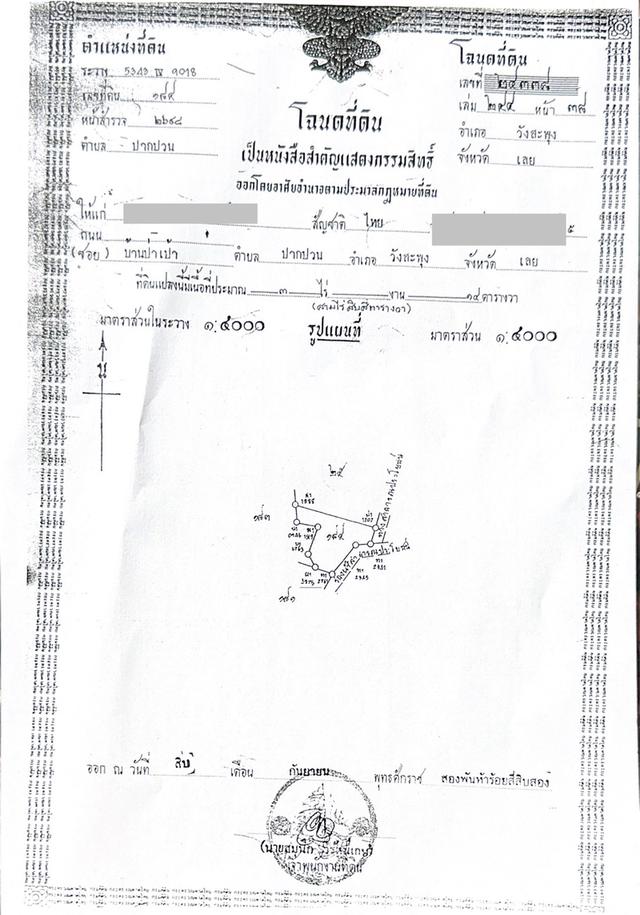 ตำแหน่งที่ดิน
ระวาง 5343 IV 9018
เลขที่ดิน ๑๘๔
หน้าสำรวจ ๒๖๙๘
ตำบล ปากปวน
โฉนดที่ดิน
เลขที่ ๒๔๓๓๘
เล่ม ๒๔๔ หน้า ๓๘
อำเภอ วังสะพุง
จังหวัด เลย
โฉนดที่ดิน
เป็นหนังสือสำคัญแสดงกรรมสิทธิ์
ออกโดยอาศัยอำนาจตามประมวลกฎหมายที่ดิน
ให้แก่ สัญชาติ ไทย
ถนน
(ซอย) บ้านป่าเป้า ตำบล ปากปวน อำเภอ วังสะพุง จังหวัด เลย
ที่ดินแปลงนี้มีเนื้อที่ประมาณ ๓ ไร่ - งาน ๑๔ ตารางวา
(สามไร่สิบสี่ตารางวา)
มาตราส่วนในระวาง ๑:๔๐๐๐ รูปแผนที่ มาตราส่วน ๑:๔๐๐๐
น
๒๕
ทางสาธารณประโยชน์
๑๘๓
๑๘๔
๑๘๑
ออก ณ วันที่ สิบ เดือน กันยายน พุทธศักราช สองพันห้าร้อยสี่สิบสอง
เจ้าพนักงานที่ดิน